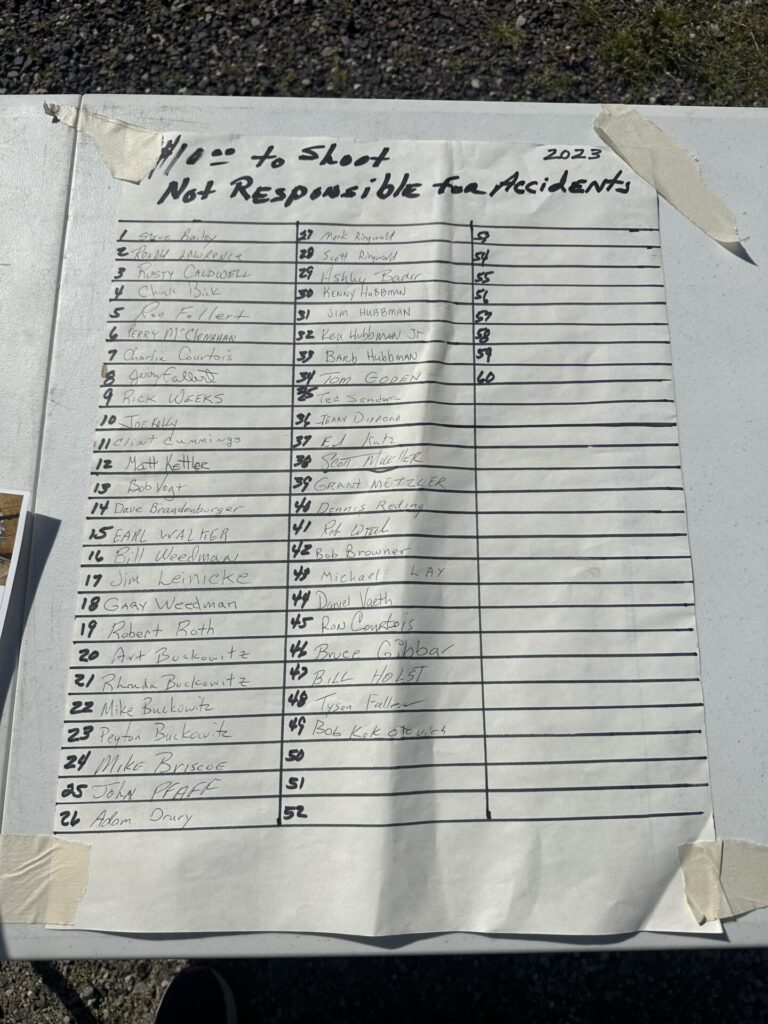 $10.00 to Shoot
2023
Not Responsible for Accidents
1 Steve Bailey
2 Ronald Lawrence
3 Rusty Caldwell
4 Chuck
5 Ron Fallert
6 Terry McClenahan
7 Charlie Courtois
8 Jerry Fallert
9 Rick Weeks
10 Joe Kelly
11 Clint Cummings
12 Matt Kettler
13 Bob Vogt
14 Dave Brandenburger
15 EARL WALKER
16 Bill Weedman
17 Jim Leinicke
18 Gary Weedman
19 Robert Roth
20 Art Buckowitz
21 Rhonda Buckowitz
22 Mike Buckowitz
23 Peyton Buckowitz
24 Mike Briscoe
25 John PFAFF
26 Adam Drury
27 Mark Ringwald
28 Scott Ringwald
29 Ashley Bader
30 KENNY HUBBMAN
31 JIM HUBBMAN
32 Ken HUBBMAN Jr
33 Barb Hubbman
34 TOM GODEN
35 Ted Sanders
36 Terry
37 Ed Kutz
38 Scott Mueller
39 GRANT METZLER
40 Dennis Reding
41
42 Bob Browner
43 Michael LAY
44 Daniel Vaeth
45 Ron Courtois
46 Bruce Gibbar
47 BILL HOLST
48 Tyson Fallert
49 Bob
50
51
52
53
54
55
56
57
58
59
60